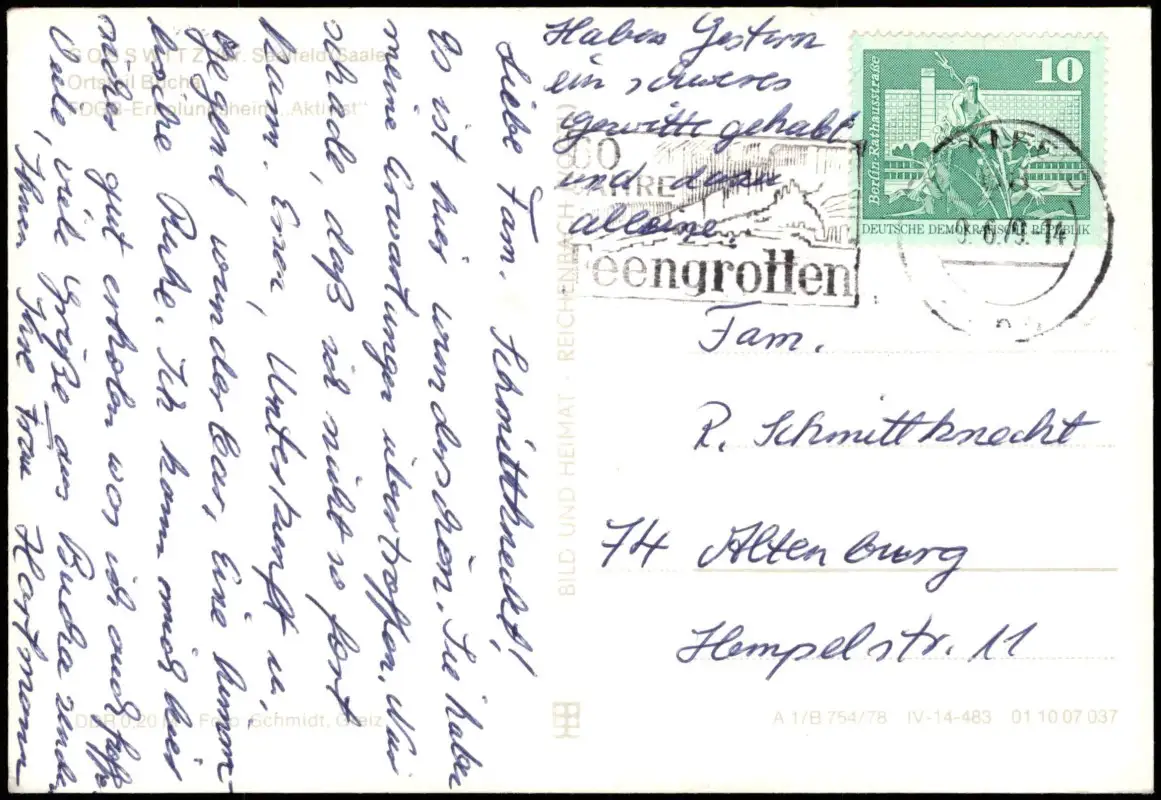 GOSSWITZ Kr. Saalfeld/Saale
Ortsteil Bucha
FDGB-Erholungsheim „Aktivist"
Liebe Fam. Schmittknecht!
Es ist hier wunderschön. Sie haben
meine Erwartungen übertroffen. Nur
schade, daß ich nicht so fort
kam. Essen, Unterkunft u.
Gegend wunderbar, Eine himm-
lische Ruhe. Ich kann mich hier
sicher gut erholen was ich auch hoffe.
Viele, viele Grüße aus Bucha sendet
Ihnen Ihre Frau Hartmann
Haben Gestern
ein schweres
gewitte gehabt
und dann
alleine.
JAHRE
Feengrotten
10
Berlin-Rathausstraße
DEUTSCHE DEMOKRATISCHE REPUBLIK
9.6.79. 14
Fam.
R. Schmittknecht
74 Altenburg
Hempelstr. 11
BILD UND HEIMAT · REICHENBACH
DDR 0,20 M Foto Schmidt, Greiz
A 1/B 754/78 IV-14-483 01 10 07 037